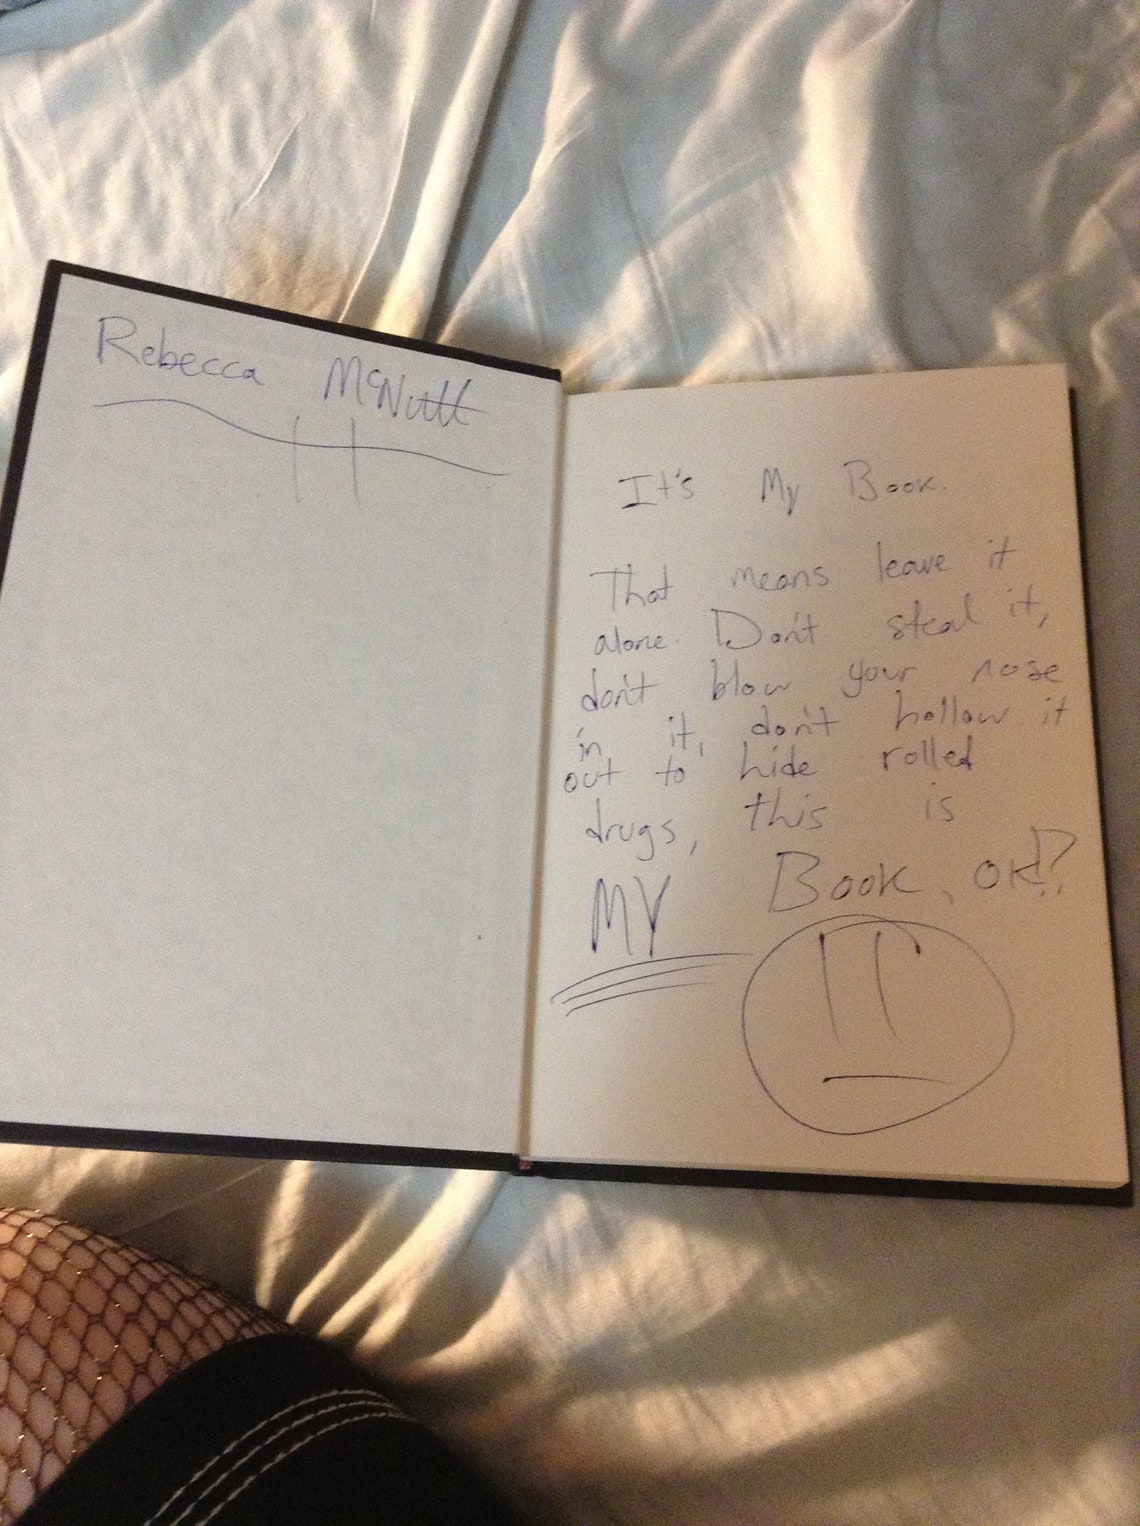 Rebecca McNutt
It's My Book.
That means leave it
alone. Don't steal it,
don't blow your nose
in it, don't hollow it
out to hide rolled
drugs, this is
MY Book, OK!?